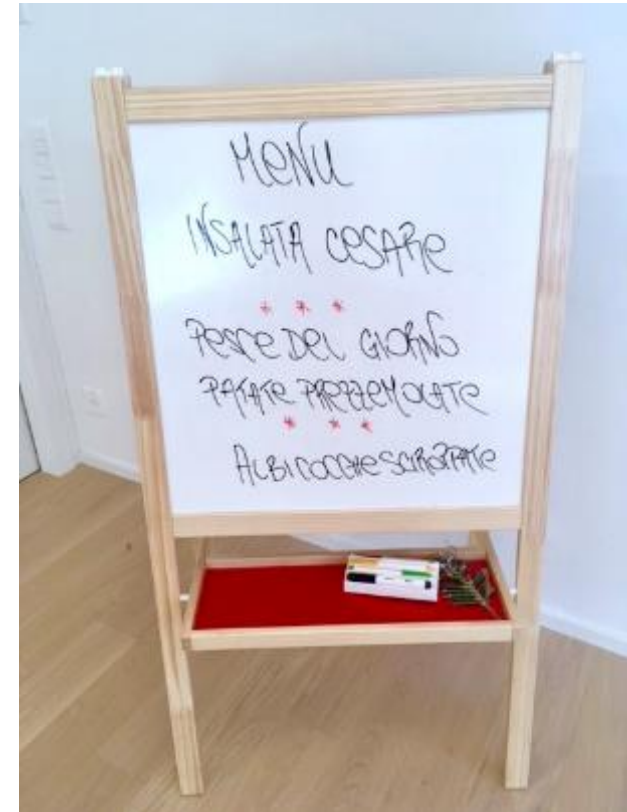 MENU
INSALATA CESARE
* * *
PESCE DEL GIORNO
PATATE PREZZEMOLATE
* * *
ALBICOCCHE SCIROPPATE